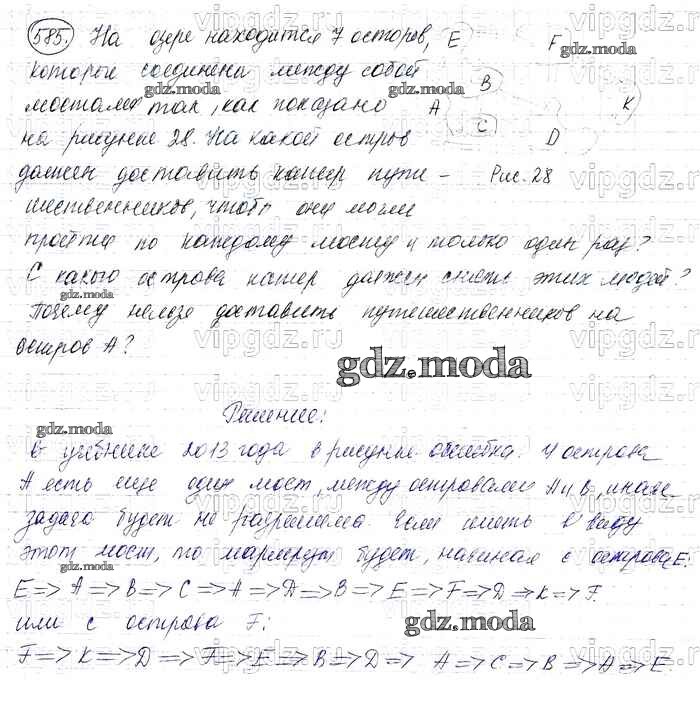 585. На озере находится 7 остров, E F
которые соединены между собой B
мостами так, как показано A K
на рисунке 28. На какой остров C D
должен доставить катер путе- Рис. 28
шественников, чтобы они могли
пройти по каждому мосту и только один раз?
С какого острова катер должен снять этих людей?
Почему нельзя доставить путешественников на
остров А?
gdz.moda
Решение:
В учебнике 2013 года в рисунке ошибка. У острова
А есть еще один мост, между островами А и В, иначе
задача будет не разрешима. Если иметь в виду
этот мост, то маршрут будет, начиная с острова E:
E=>A=>B=>C=>A=>D=>B=>E=>F=>D=>K=>F.
или с острова F:
F=>K=>D=>F=>E=>B=>D=>A=>C=>B=>A=>E.